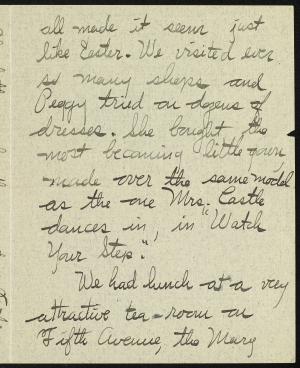 all made it seem just
like Easter. We visited ever
so many shops and
Peggy tried on dozens of
dresses. She bought the
most becoming little gown,
made over the same model
as the one Mrs. Castle
dances in, in "Watch
Your Step."
We had lunch at a very
attractive tea-room on
Fifth Avenue, the Mary